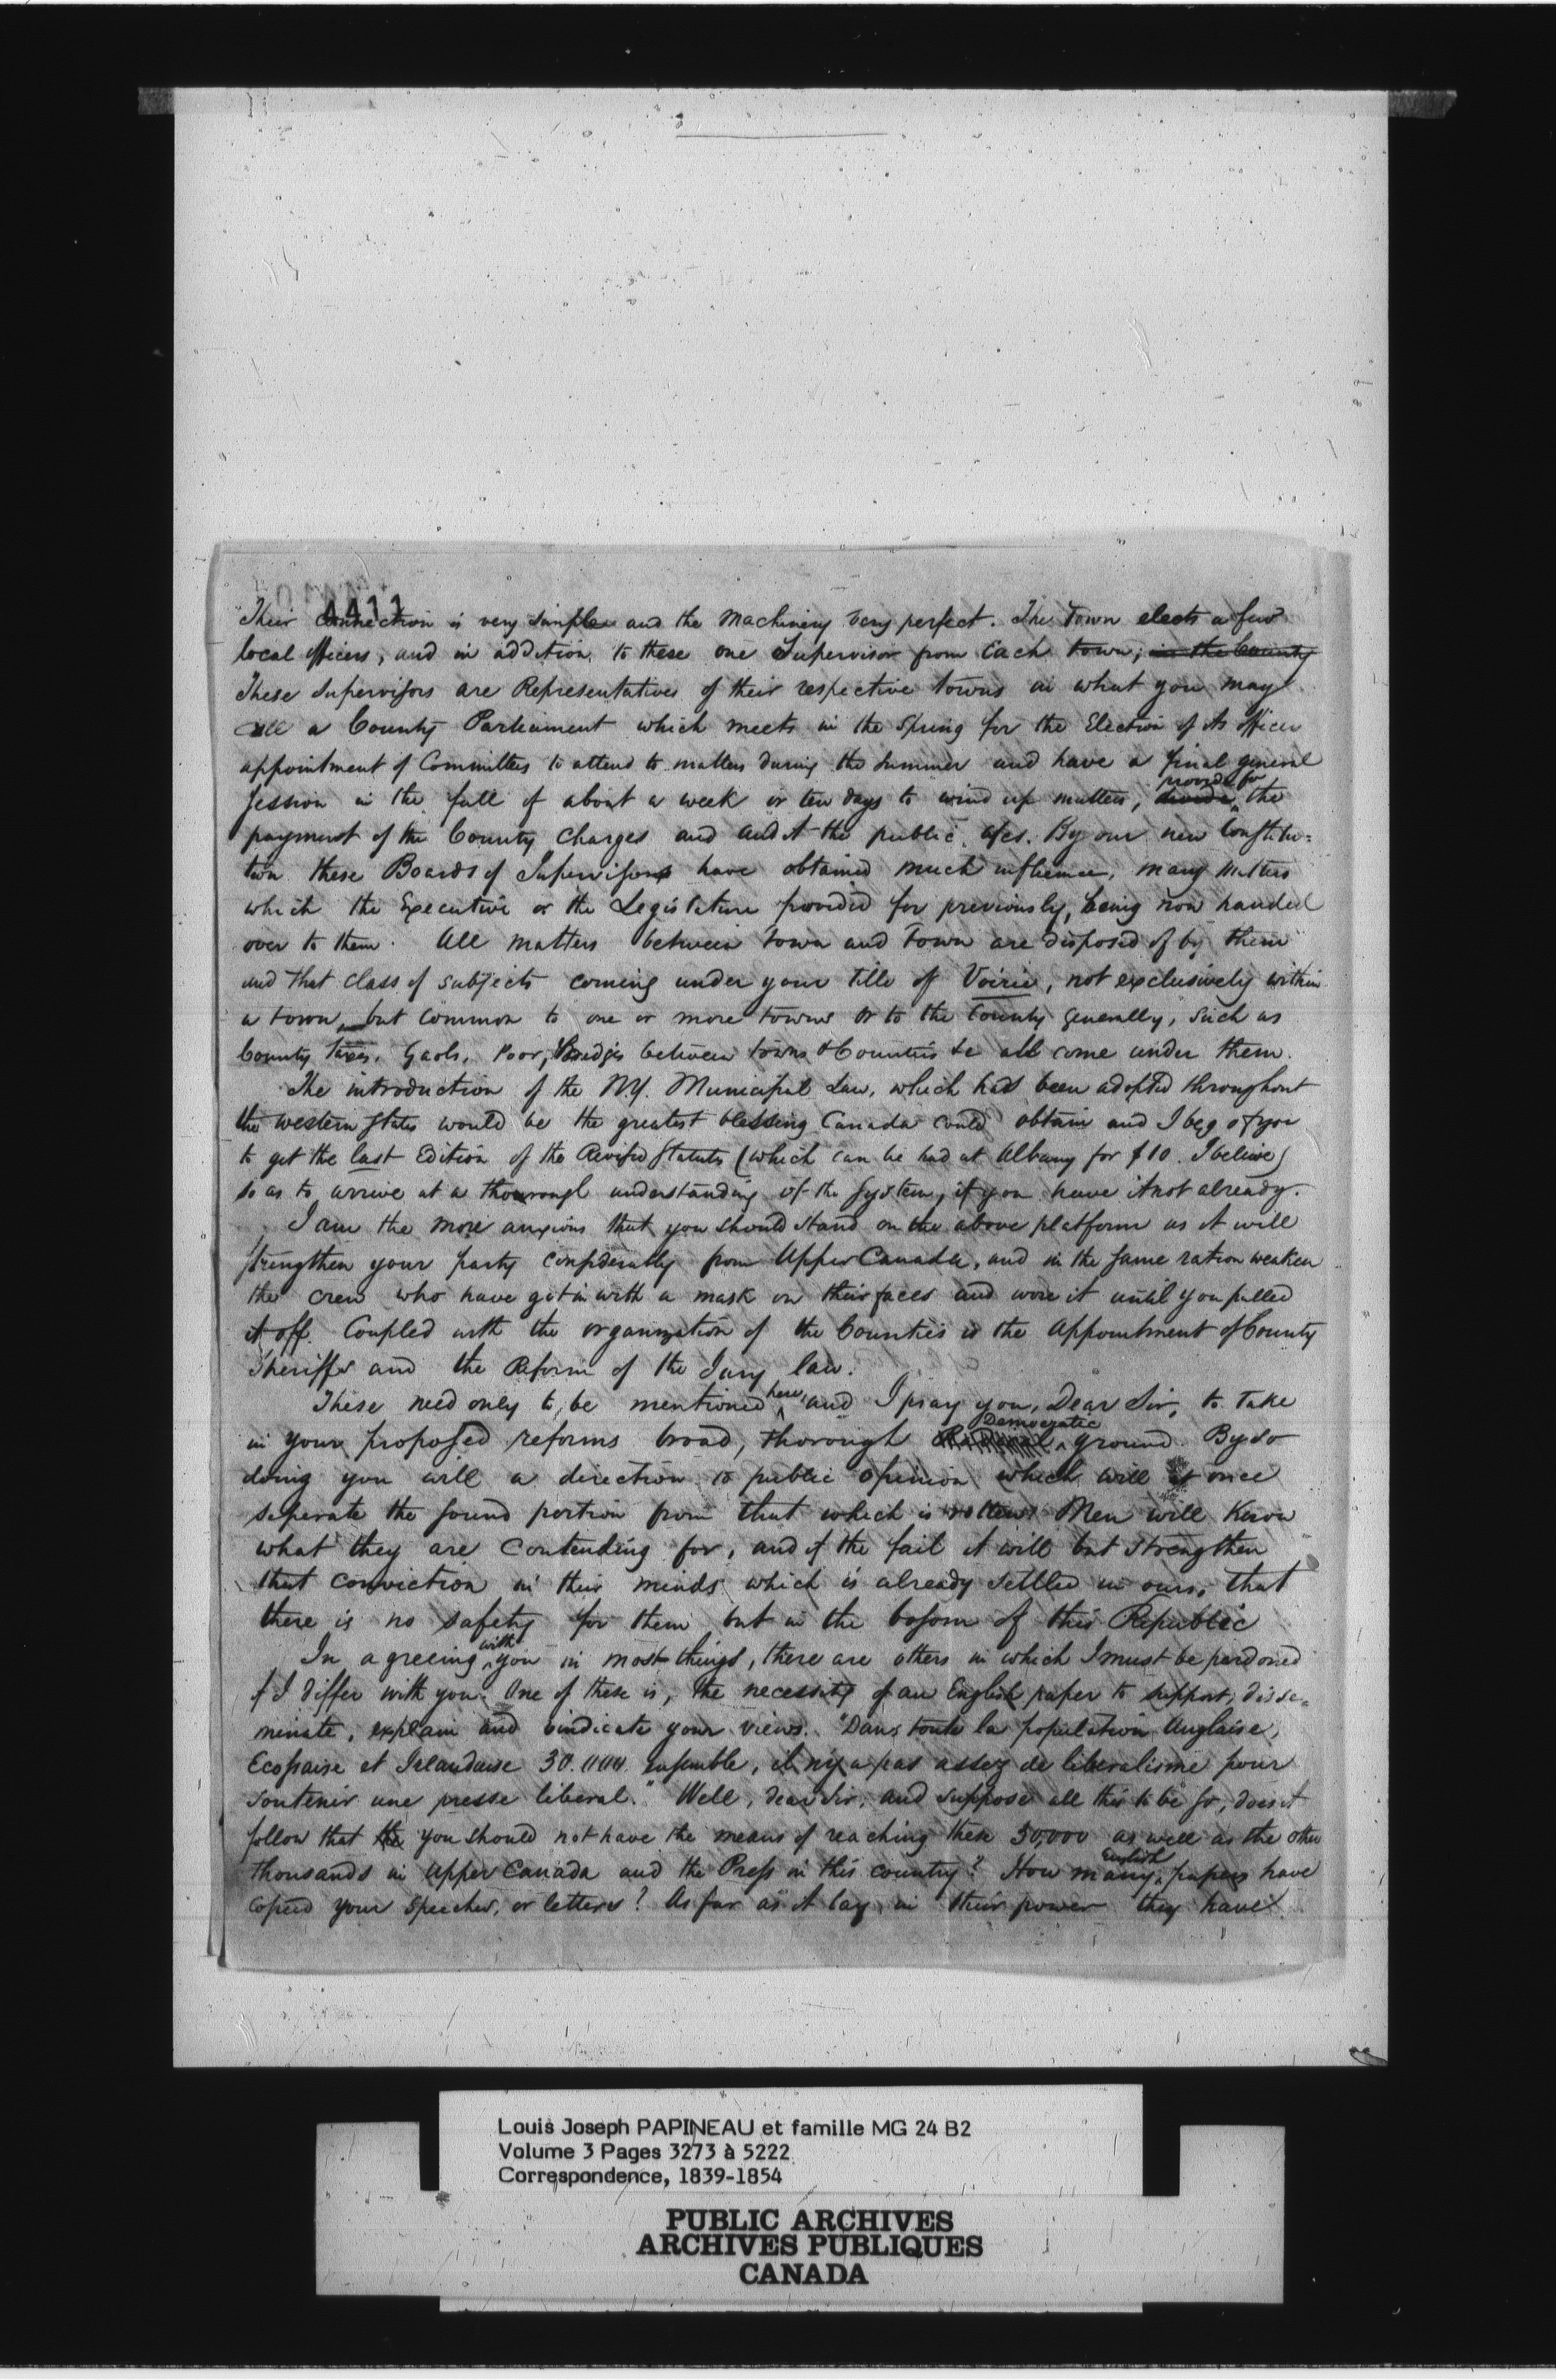 4411
Their Connection is very simple and the Machinery very perfect. The Town elects a few
local officers, and in addition to these one Supervisor from Each town; in the County
These Supervisors are Representatives of their respective towns in what you may
call a County Parliament which meets in the Spring for the Election of its officer
appointment of Committees to attend to matters during the Summer and have a final general
Session in the fall of about a week or ten days to wind up matters, provide for the
payment of the County Charges and audit the public a/cs. By our new Constitu=
tion these Boards of Supervisors have obtained much influence, many matters
which the Executive or the Legislature provided for previously, being now handed
over to them. All matters between Town and Town are disposed of by them
and that class of subjects coming under your title of Voirie, not exclusively within
a town, but common to one or more towns or to the County generally, such as
County taxes, Gaols, Poor, Bridges between towns & Counties &c all come under them.
The introduction of the N.Y. Municipal Law, which has been adopted throughout
the western States would be the greatest blessing Canada could obtain and I beg of you
to get the last Edition of the Revised Statutes (which can be had at Albany for $10. I believe)
so as to arrive at a thourough understanding of the System, if you have it not already.
I am the more anxious that you should stand on the above platform as it will
strengthen your party considerably from Upper Canada, and in the same ration weaken
the crew who have got in with a mask on their faces and wore it until you pulled
it off. Coupled with the organization of the Counties is the Appointment of County
Sheriffs and the Reform of the Jury law.
These need only to be mentioned here, and I pray you, Dear Sir, to take
in your proposed reforms broad, thorough Democratic ground. By so
doing you will a direction to public opinion which will at once
seperate the sound portion from that which is rotten. Men will know
what they are contending for, and if the fail it will but strengthen
that conviction in their minds which is already settled in ours, that
there is no safety for them but in the bosom of this Republic
In agreeing with you in most things, there are others in which I must be pardoned
if I differ with you. One of these is, the necessity of an English paper to support, disse=
minate, explain and vindicate your views. "Dans toute la population Anglaise,
Ecossaise et Irlandaise 30.000 ensemble, il n'y a pas assez de liberalisme pour
soutenir une presse liberal." Well, dear Sir, and suppose all this to be so, does it
follow that the you should not have the means of reaching these 30,000 as well as the other
thousands in Upper Canada and the Press in this country? How many English papers have
copied your speeches, or letters? As far as it lay in their power they have
Louis Joseph PAPINEAU et famille MG 24 B2
Volume 3 Pages 3273 à 5222
Correspondence, 1839-1854
PUBLIC ARCHIVES
ARCHIVES PUBLIQUES
CANADA